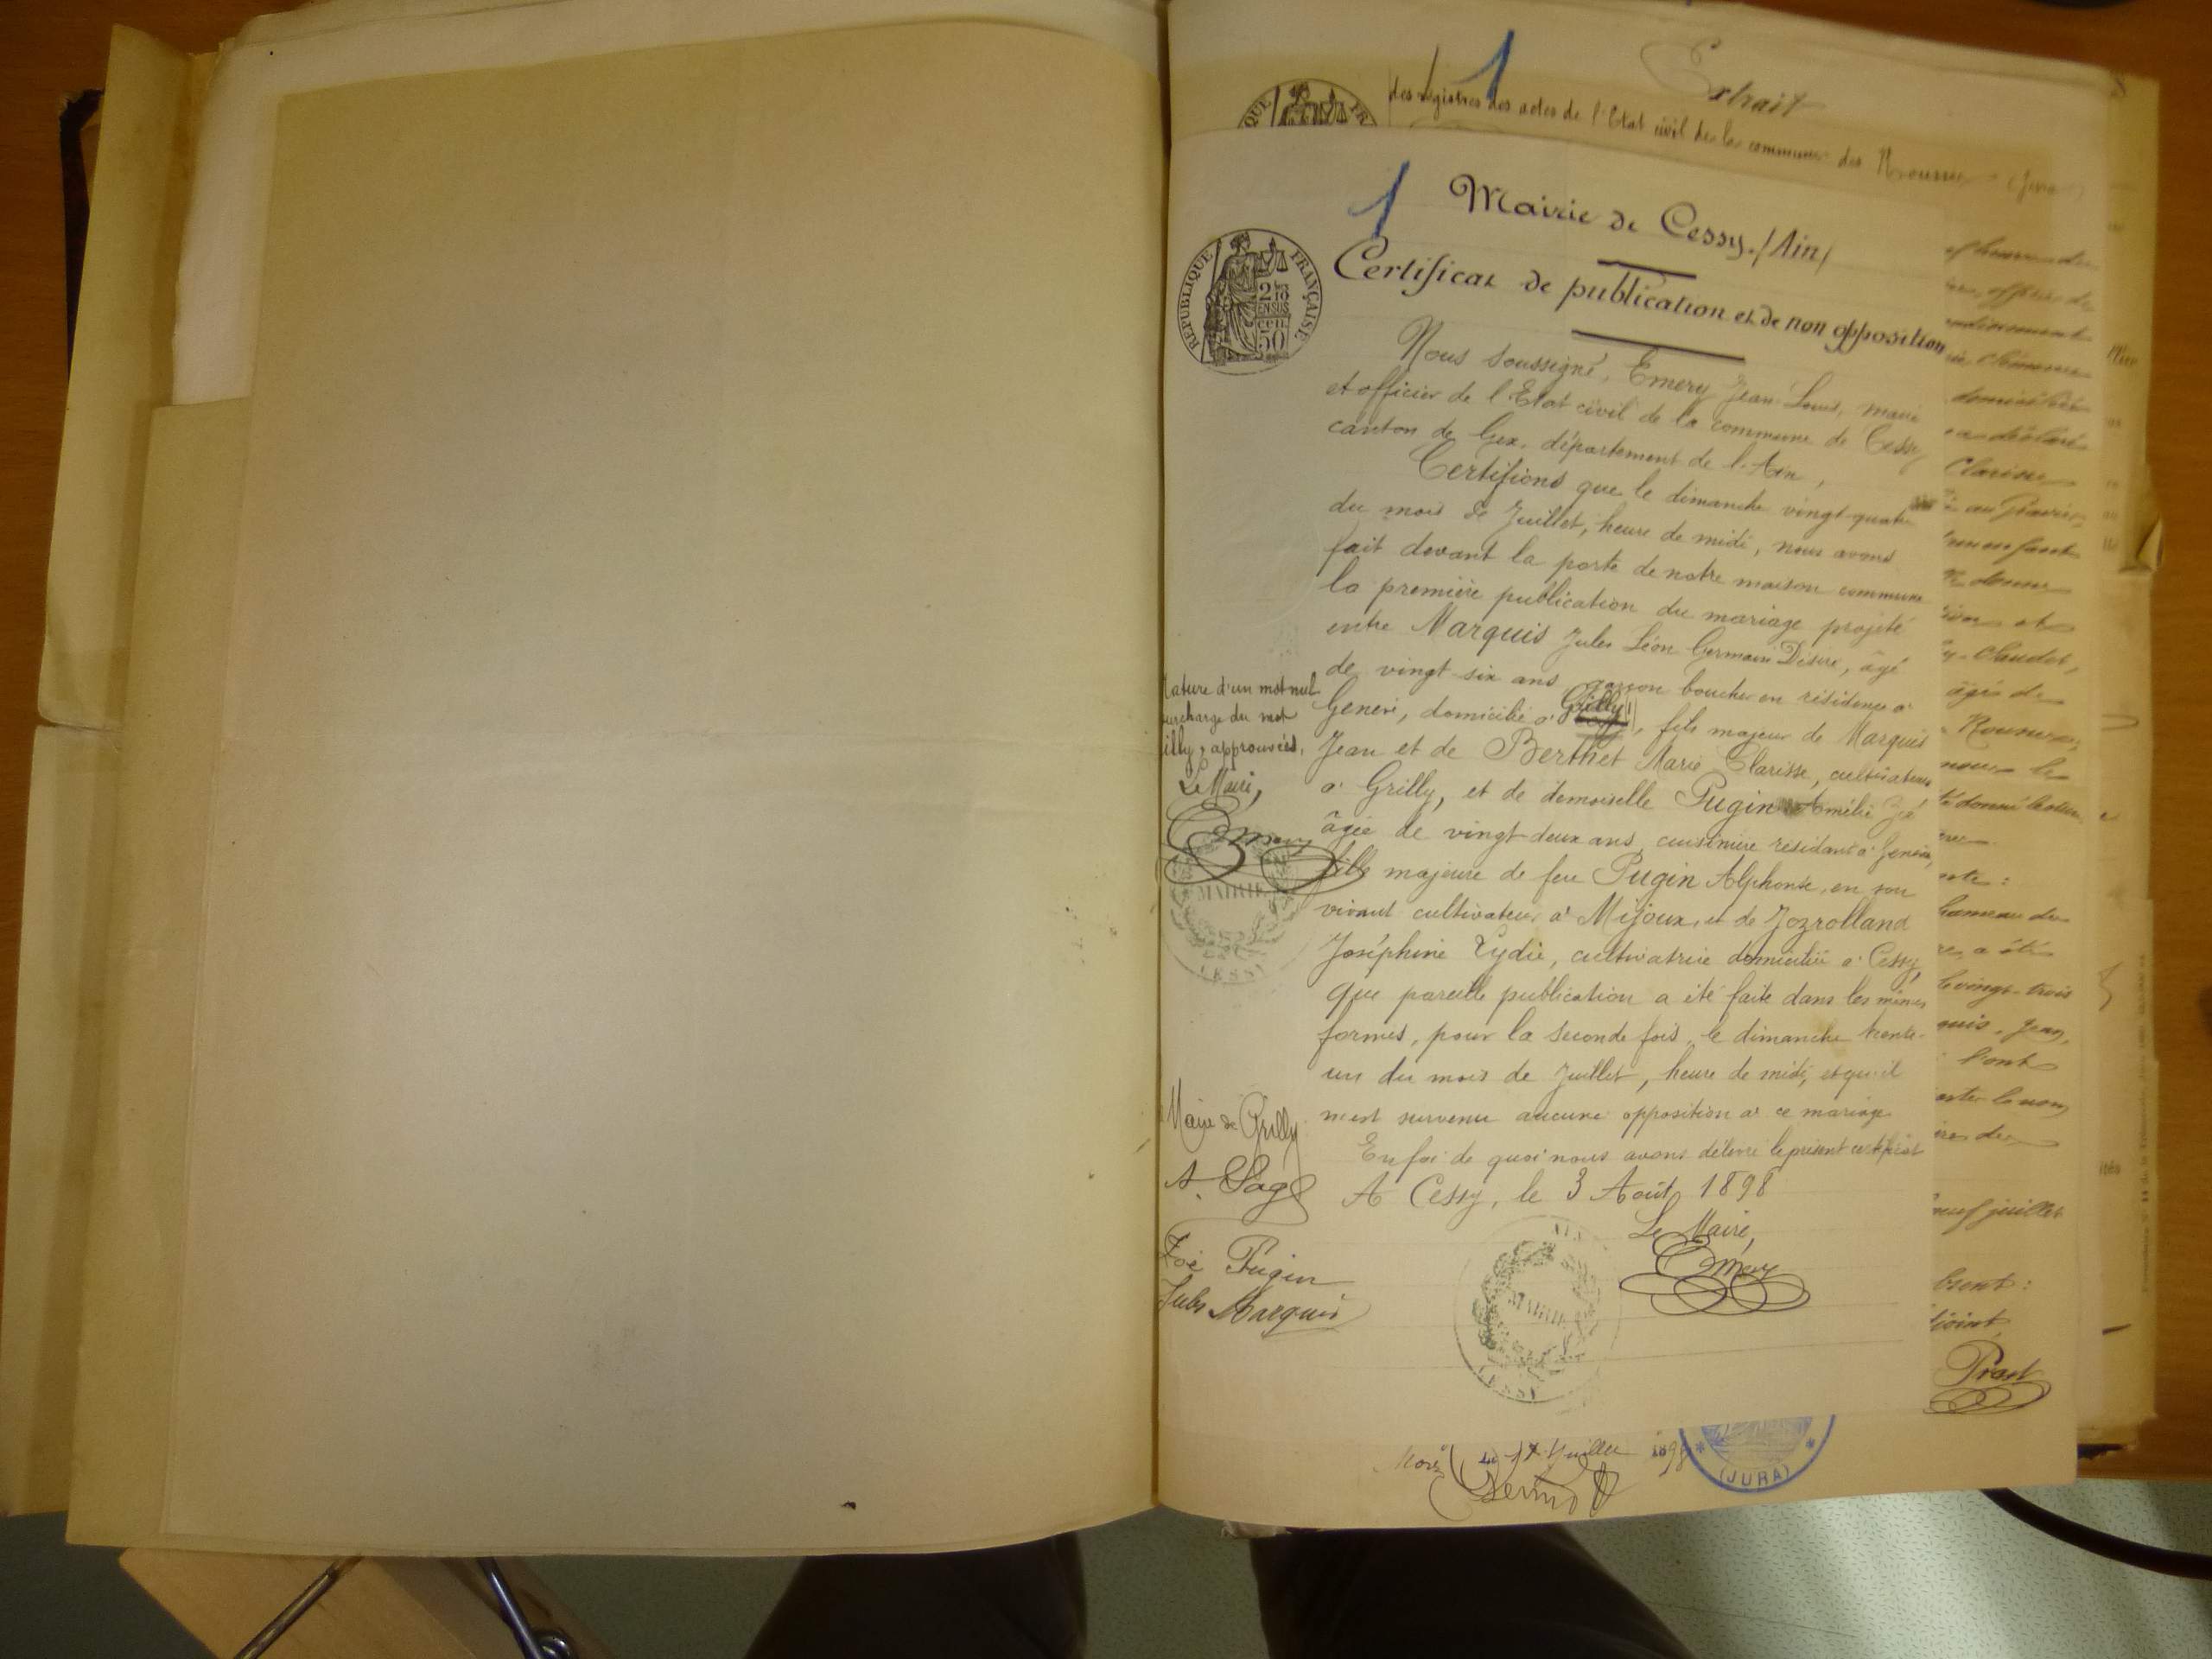 1
Extrait
des registres des actes de l'Etat civil de la commune des Rousses (Jura)
1
Mairie de Cessy (Ain)
Certificat de publication et de non opposition
RÉPUBLIQUE FRANÇAISE
2/10 EN SUS
50 cen
Nous soussigné, Emery Jean Louis, maire
et officier de l'Etat civil de la commune de Cessy
canton de Gex, département de l'Ain,
Certifions que le dimanche vingt-quatre
du mois de Juillet, heure de midi, nous avons
fait devant la porte de notre maison commune
la première publication du mariage projeté
entre Marquis Jules Léon Germain Désiré, âgé
de vingt six ans garçon boucher en résidence à
Genève, domicilié à Grilly, fils majeur de Marquis
Jean et de Berthet Marie Clarisse, cultivateurs
à Grilly, et de demoiselle Pugin Amélie Zoé
âgée de vingt-deux ans, cuisinière résidant à Genève,
fille majeure de feu Pugin Alphonse, en son
vivant cultivateur à Mijoux, et de Jozrolland
Joséphine Lydie, cultivatrice domiciliée à Cessy,
que pareille publication a été faite dans les mêmes
formes, pour la seconde fois, le dimanche trente-
un du mois de Juillet, heure de midi, et qu'il
n'est survenu aucune opposition à ce mariage
En foi de quoi nous avons délivré le présent certificat
A Cessy, le 3 Août 1898
Le Maire,
Emery
MAIRIE
CESSY
AIN
rature d'un mot nul
surcharge du mot
Grilly, approuvées,
Le Maire,
Emery
MAIRIE
CESSY
Maire de Grilly
Zoé Pugin
Jules Marquis
domiciliée
a déclaré
Clarisse
âgé de
hameau de
a été
vingt-trois
Jean,
l'ont
le nom
neuf juillet
Prost
juillet 1898
(JURA)